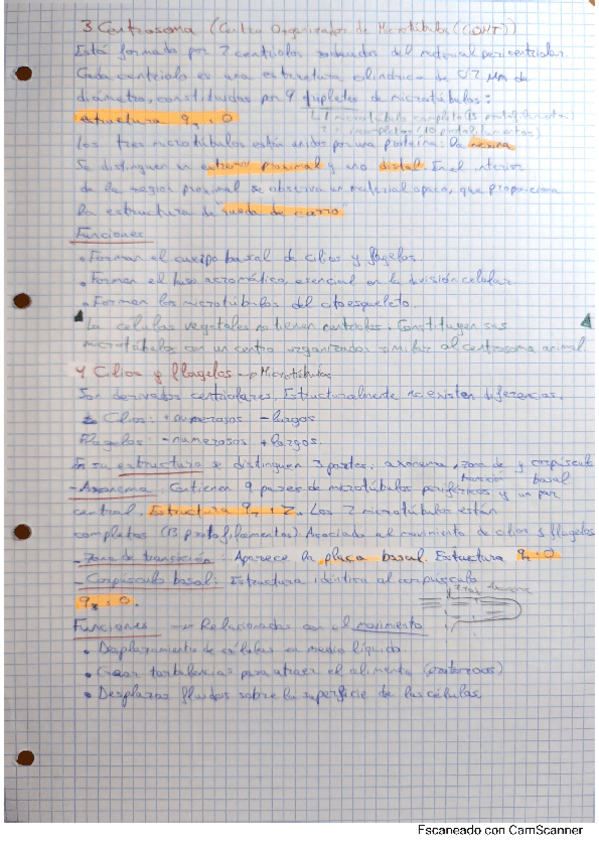 3 Centrosoma (Centro Organizador de Microtúbulos (COMT))
Está formado por 2 centriolos rodeados del material pericentriolar.
Cada centriolo es una estructura cilíndrica de 0'2 µm de
diámetro, constituidas por 9 tripletes de microtúbulos:
estructura 9₃ + 0
1 microtúbulo completo (13 protofilamentos)
2 incompletos (10 protofilamentos)
Los tres microtúbulos están unidos por una proteína: la nexina
Se distinguen un extremo proximal y uno distal. En el interior
de la región proximal se observa un material opaco, que proporciona
la estructura de "rueda de carro"
Funciones
• Forman el cuerpo basal de cilios y flagelos.
• Forman el huso acromático, esencial en la división celular
• Forman los microtúbulos del citoesqueleto.
La células vegetales no tienen centriolos. Constituyen sus
microtúbulos con un centro organizador similar al centrosoma animal
4 Cilios y flagelos → Microtúbulos
Son derivados centriolares. Estructuralmente no existen diferencias.
Cilios: + numerosos - largos
Flagelos: - numerosos + largos.
En su estructura se distinguen 3 partes: axonema, zona de y corpúsculo
transición basal
- Axonema. Contienen 9 pares de microtúbulos periféricos y un par
central. Estructura 9₂ + 2. Los 2 microtúbulos están
completos (13 protofilamentos) Asociado al movimiento de cilios y flagelos
- Zona de transición. Aparece la placa basal. Estructura 9₂ + 0
- Corpúsculo basal: Estructura idéntica al corpúsculo
9₃ + 0.
Funciones → Relacionadas con el movimiento
• Desplazamiento de células en medio líquido.
• Crear turbulencias para atraer el alimento (protozoos)
• Desplazar fluidos sobre la superficie de las células.
Escaneado con CamScanner